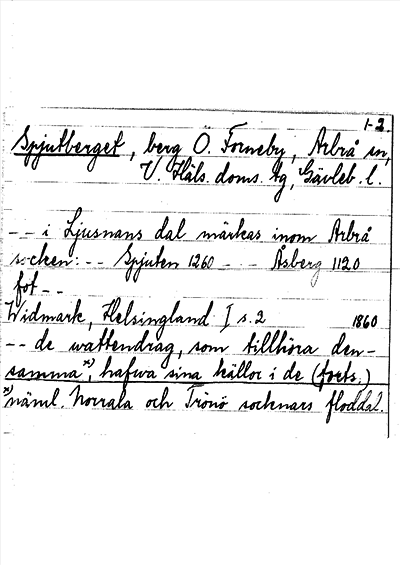 1-2.
Spjutberget, berg Ö. Forneby, Arbrå sn,
V. Häls. doms. tg, Gävleb. l.
-- i Ljusnans dal märkas inom Arbrå
socken: -- Spjuten 1260 -- Åsberg 1120
fot --
Widmark, Helsingland I s. 2 1860
-- de wattendrag, som tillhöra den-
samma x), hafwa sina källor i de (forts.)
x) näml. Norrala och Trönö socknars floddal.